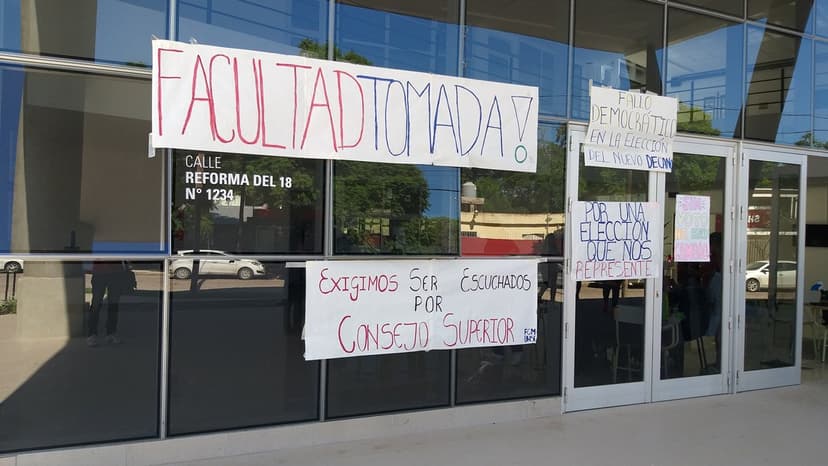 FACULTAD TOMADA!
CALLE
REFORMA DEL 18
N° 1234
FALLO
DEMOCRÁTICO
EN LA ELECCIÓN
DEL NUEVO DECANO
POR UNA
ELECCIÓN
QUE NOS
REPRESENTE
EXIGIMOS SER ESCUCHADOS
POR
CONSEJO SUPERIOR
FCM